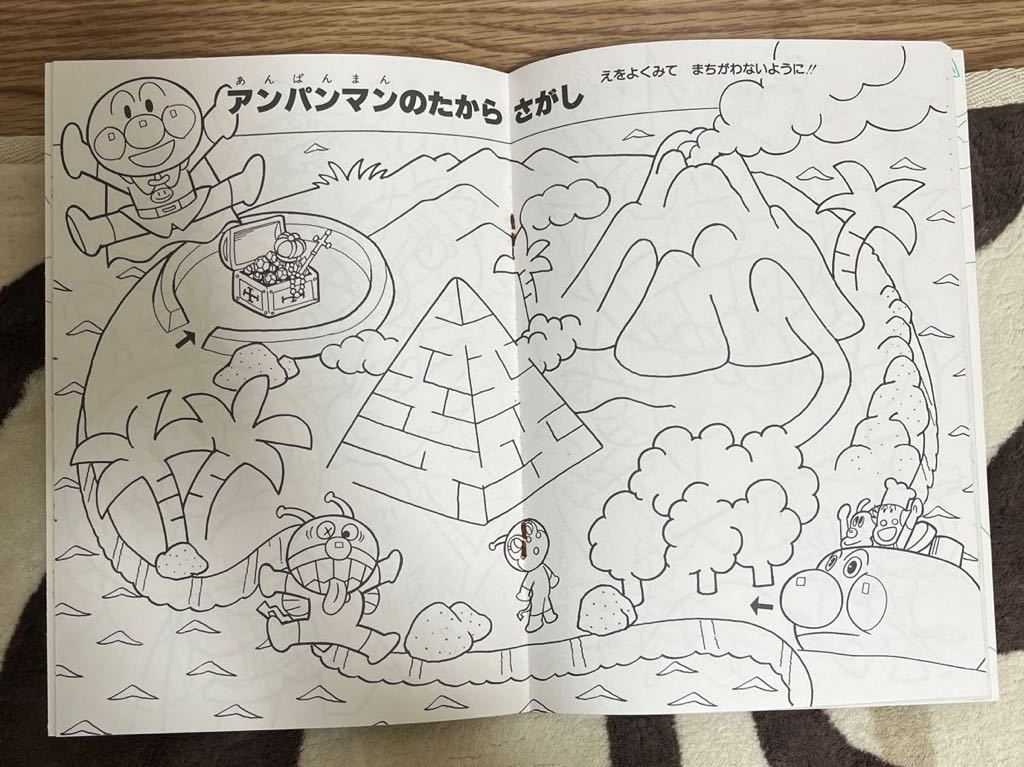 あんぱんまん
アンパンマンのたからさがし
えをよくみて まちがわないように!!